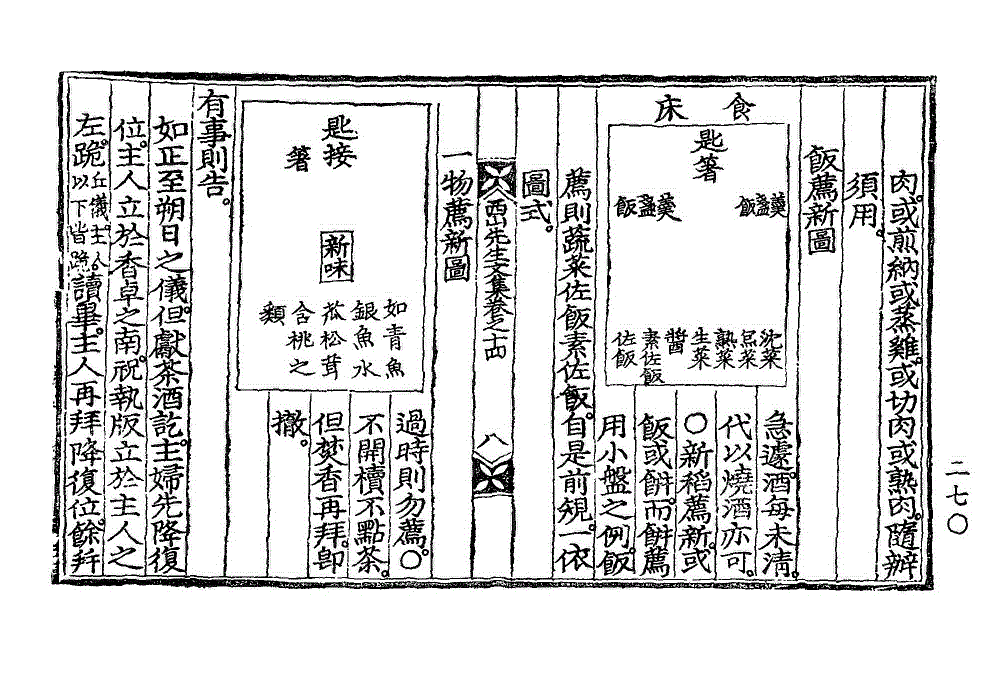 肉。或煎納或蒸雞。或切肉或熟肉。隨辦
須用。
飯薦新圖
食床
匙箸
羹盞飯
羹盞飯
沈菜
熟菜
生菜
醬
素佐飯
佐飯
急遽。酒每未淸。
代以燒酒亦可。
○新稻薦新。或
飯或餠。而餠薦
用小盤之例。飯
薦則蔬菜佐飯素佐飯。自是前規。一依
圖式。
西山先生文集卷之十四
八
一物薦新圖
匙接
箸
新味
如靑魚
銀魚水
苽松茸
含桃之
類
過時則勿薦。○
不開櫝不點茶。
但焚香再拜。卽
撤。
有事則告。
如正至朔日之儀。但獻茶酒訖。主婦先降復
位。主人立於香卓之南。祝執版立於主人之
左。跪。丘儀。主人以下皆跪。讀畢。主人再拜降復位。餘幷
二七〇